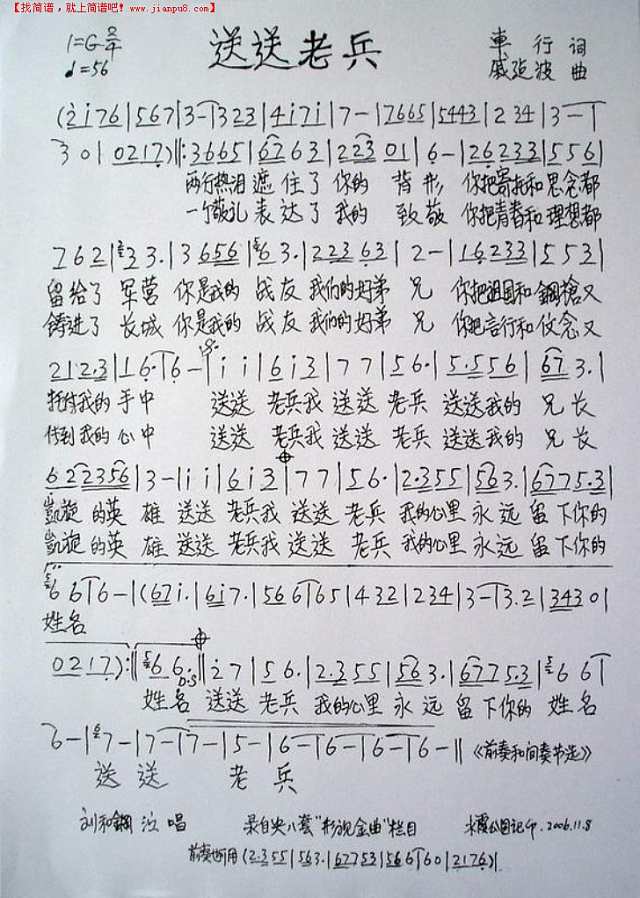 【找简谱，就上简谱吧！www.jianpu8.com】
送送老兵
1=G 2/4
♩=56
車行 词
戚建波 曲
(2i76|567|3-|323|4i7i|7-|7665|5443|234|3-|
30|0217):‖3665|6763|22301|6-|26233|556|
两行热泪遮住了你的背影 你把寄托和思念都
一个敬礼表达了我的致敬 你把青春和理想都
762|33.|3656|63.|22363|2-|16233|553|
留给了军营 你是我的战友我们的好弟兄 你把祖国和鋼槍又
铸进了长城 你是我的战友我们的好弟兄 你把言行和信念又
212.3|16.|6-|ii|6i3|77|56.|5.556|673.|
托付我的手中 送送老兵我送送老兵 送送我的兄长
传到我的心中 送送老兵我送送老兵 送送我的兄长
622356|3-|ii|6i3|77|56.|2.355|563.|67753|
凱旋的英雄 送送老兵我送送老兵 我的心里永远留下你的
凱旋的英雄 送送老兵我送送老兵 我的心里永远留下你的
66|6-|(67i.|6i7.|566|65|432|234|3-|3.2|3430|
姓名
0217):‖66.‖27|56.|2.355|563.|6775.3|66|
D.S
姓名 送送老兵 我的心里永远留下你的姓名
6-|7-|7-|7-|5-|6-|6-|6-|6-‖《前奏和间奏节选》
送送老兵
刘和鋼 演唱 录自央八套"影视金曲"栏目 2006.11.8
(2.355|563.|67753|566|60|2176)|